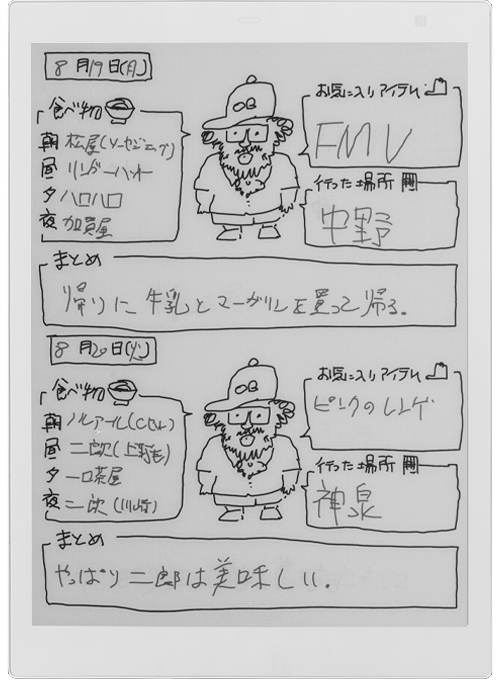 8月19日(月)
食べ物
朝 松屋(ソーセジエッグ)
昼 リンガーハット
夕 ハロハロ
夜 加賀屋
OB
お気に入りアイテム
FMV
行った場所
中野
まとめ
帰りに牛乳とマーガリンを買って帰る。
8月20日(火)
食べ物
朝
昼 二郎(上野毛)
夕 一口茶屋
夜 二郎(川崎)
OB
お気に入りアイテム
ピンクのレンゲ
行った場所
神泉
まとめ
やっぱり二郎は美味しい。